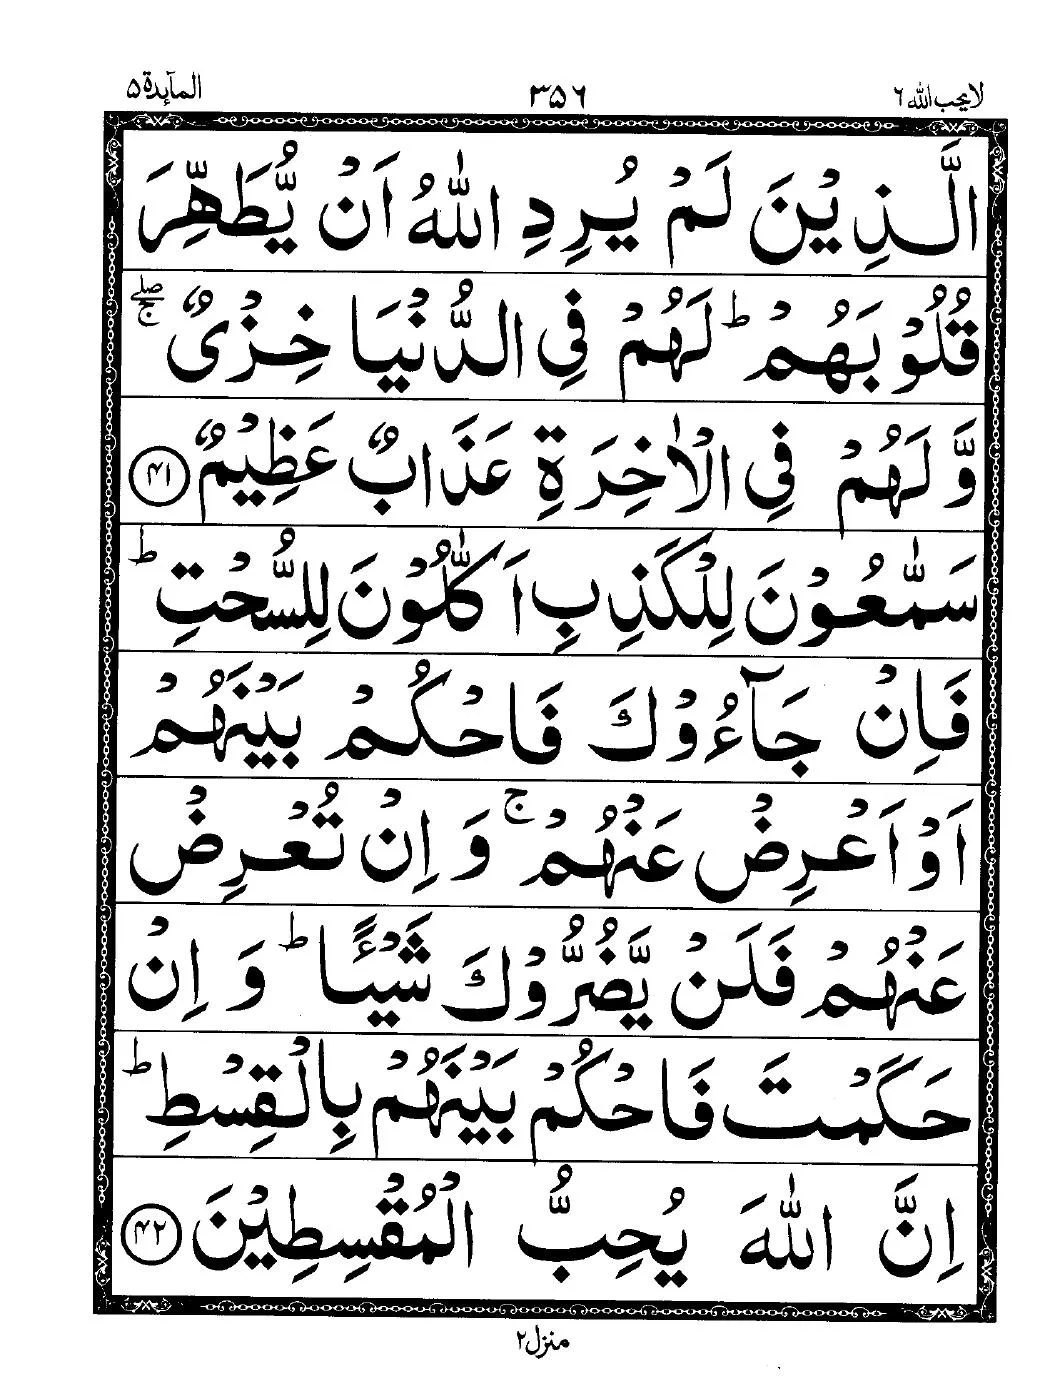 لا يحب الله ٦ ٣٥٦ المآىٕدة ٥
الَّذِيْنَ لَمْ يُرِدِ اللّٰهُ اَنْ يُّطَهِّرَ
قُلُوْبَهُمْ ؕ لَهُمْ فِى الدُّنْيَا خِزْىٌ ۖۚ
وَّلَهُمْ فِى الْاٰخِرَةِ عَذَابٌ عَظِيْمٌ ﴿۴۱﴾
سَمّٰعُوْنَ لِلْكَذِبِ اَكّٰلُوْنَ لِلسُّحْتِ ؕ
فَاِنْ جَآءُوْكَ فَاحْكُمْ بَيْنَهُمْ
اَوْ اَعْرِضْ عَنْهُمْ ۚ وَاِنْ تُعْرِضْ
عَنْهُمْ فَلَنْ يَّضُرُّوْكَ شَيْـًٔا ؕ وَاِنْ
حَكَمْتَ فَاحْكُمْ بَيْنَهُمْ بِالْقِسْطِ ؕ
اِنَّ اللّٰهَ يُحِبُّ الْمُقْسِطِيْنَ ﴿۴۲﴾
منزل ٢